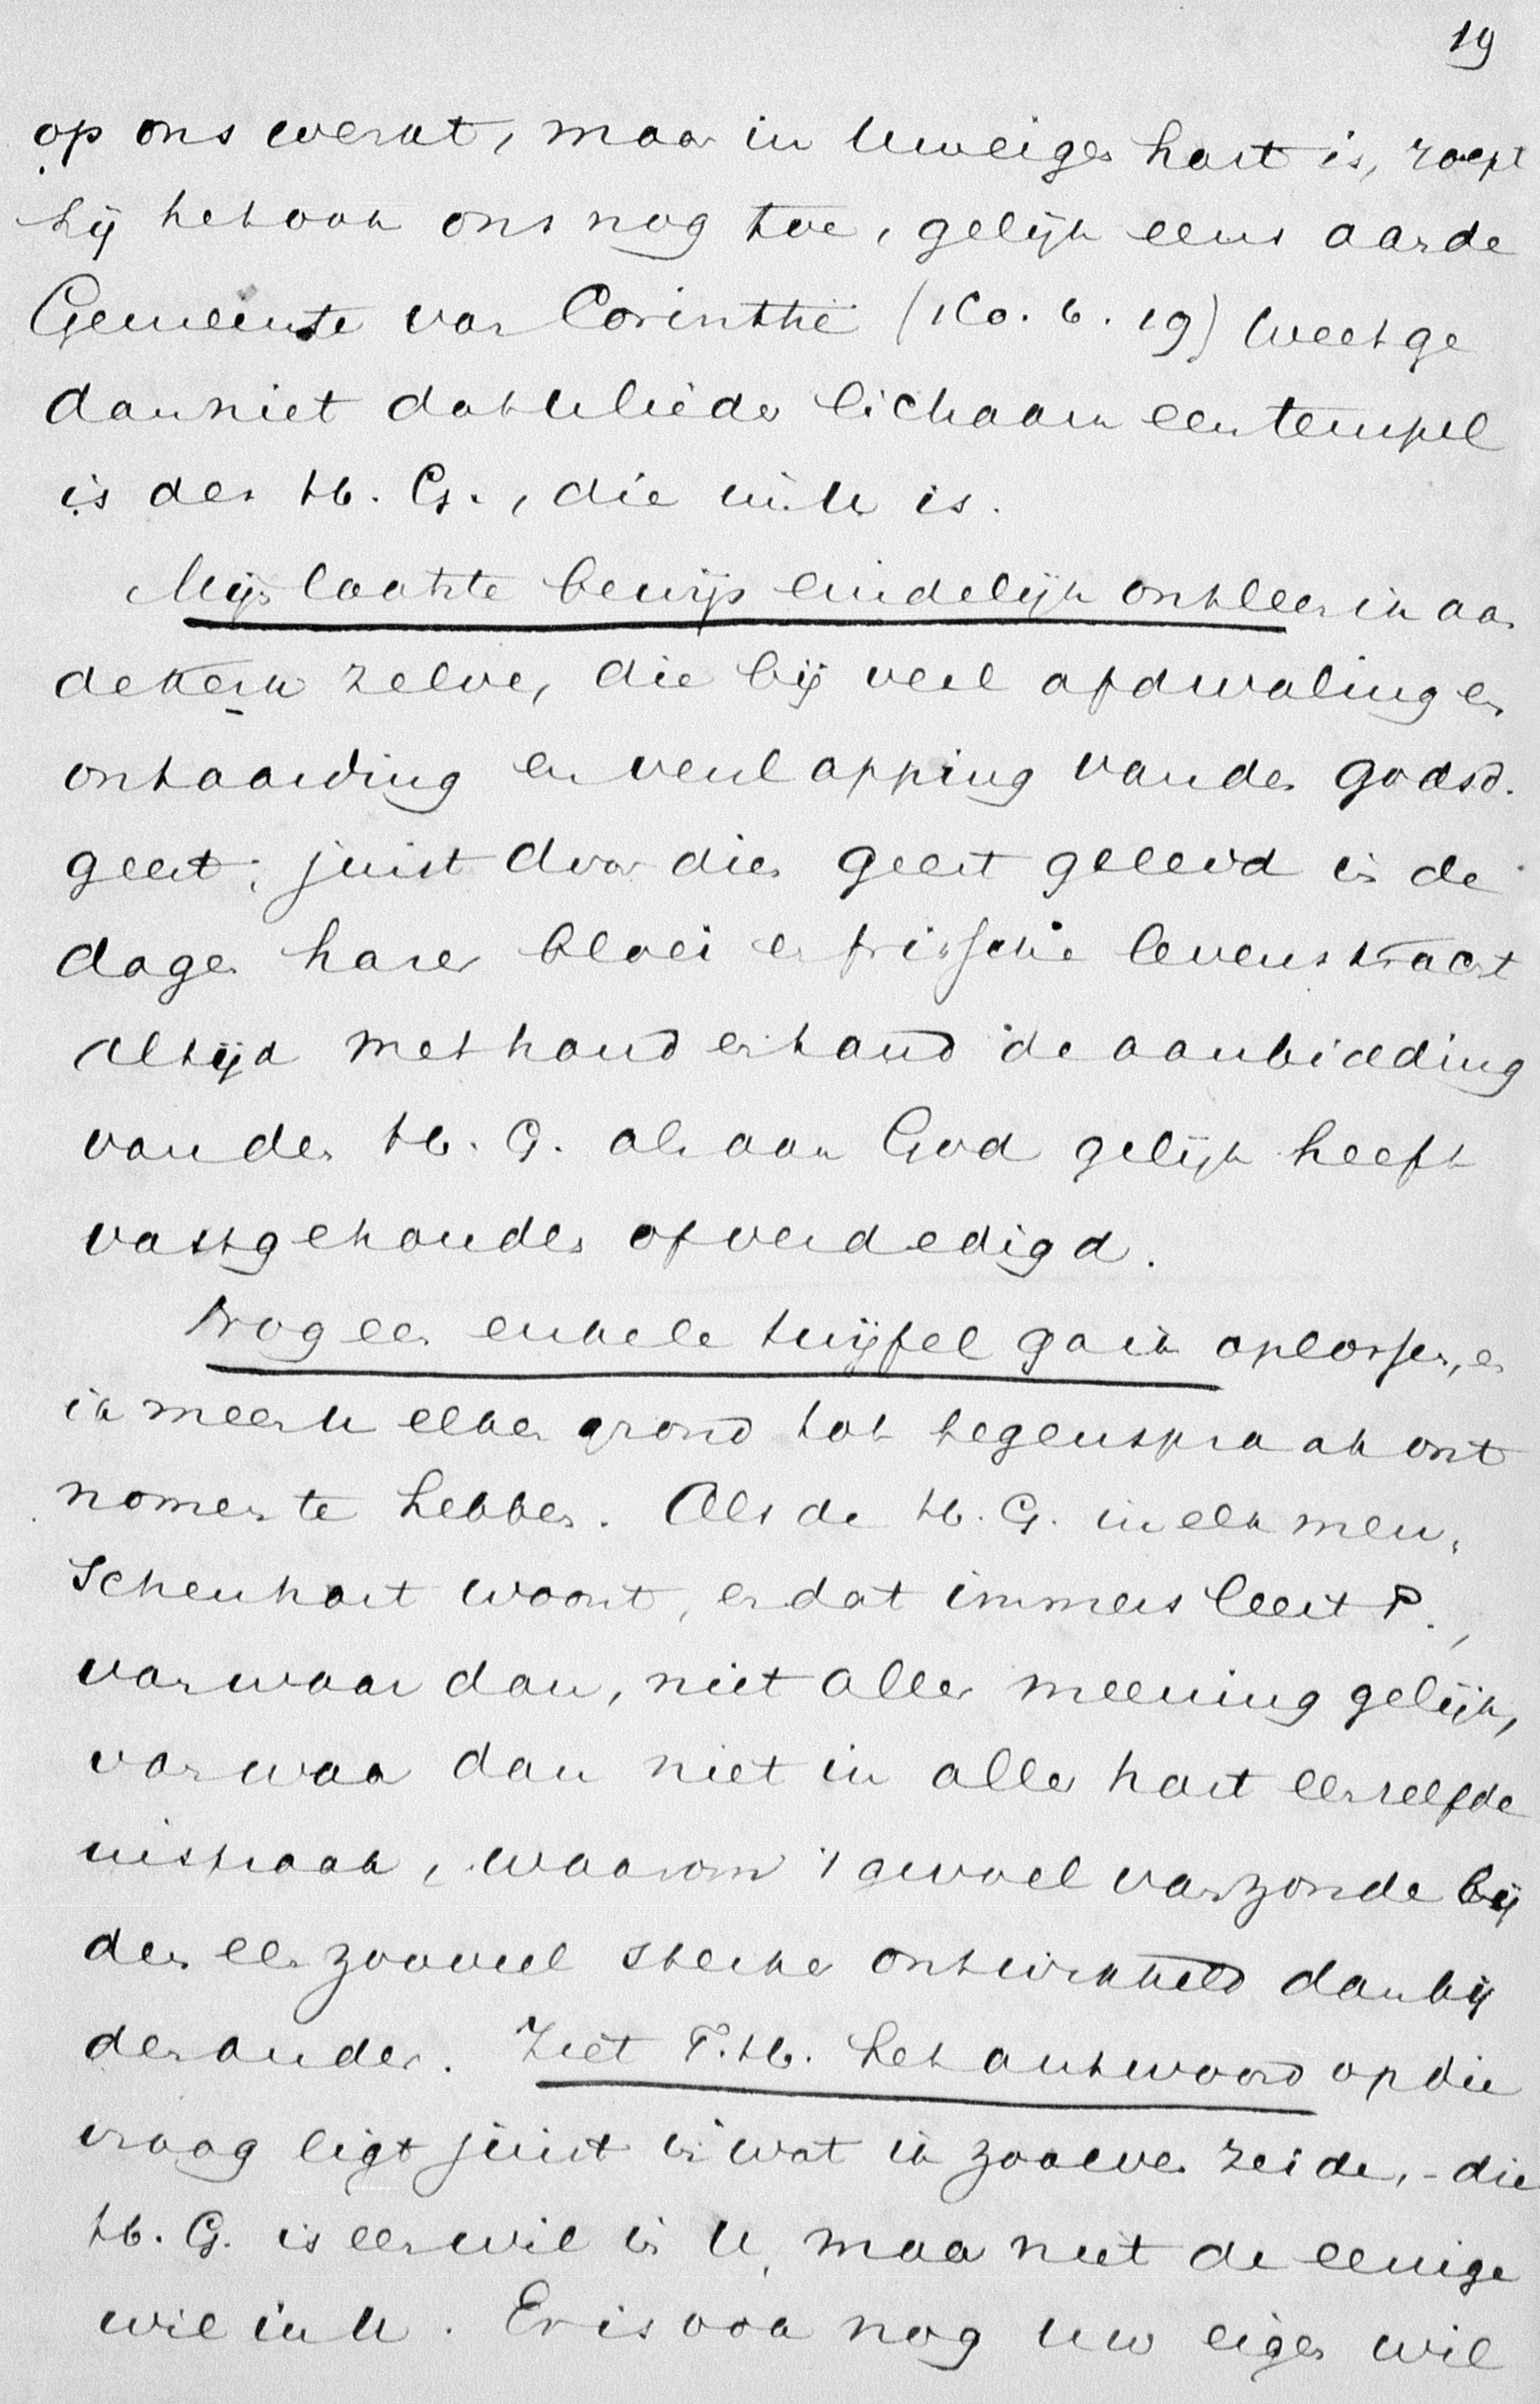 19
op ons werkt, maar in Uw eigen hart is, roept
hij het ook ons nog toe, gelijk eens aan de
Gemeente van Corinthië (1 Co. 6. 19) Weet ge
dan niet dat Ulieder lichaam een tempel
is den H. G., die in U is.
Mijn laatste bewijs eindelijk ontleen ik aan
de Kerk zelve, die bij veel afdwaling en
ontaarding en verslapping van den godsd.
geest, juist door dien geest geleid in de
dagen haren bloei en frissche levenskracht
altijd met hand en tand de aanbidding
van den H. G. als aan God gelijk heeft
vastgehouden of verdedigd.
Nog een enkele twijfel ga ik oplossen, en
ik meen U elken grond tot tegenspraak ont
nomen te hebben. Als de H. G. in elk men,
schenhart woont, en dat immers leert P.,
van waar dan, niet aller meening gelijk,
van waar dan niet in aller hart eenzelfde
uitspraak, waarom 't gevoel van zonde bij
den een zooveel sterker ontwikkeld dan bij
den ander. Ziet T. H. het antwoord op die
vraag ligt juist in wat ik zooeven zeide, - die
H. G. is een wil in U, maar niet de eenige
wil in U. Er is ook nog Uw eigen wil